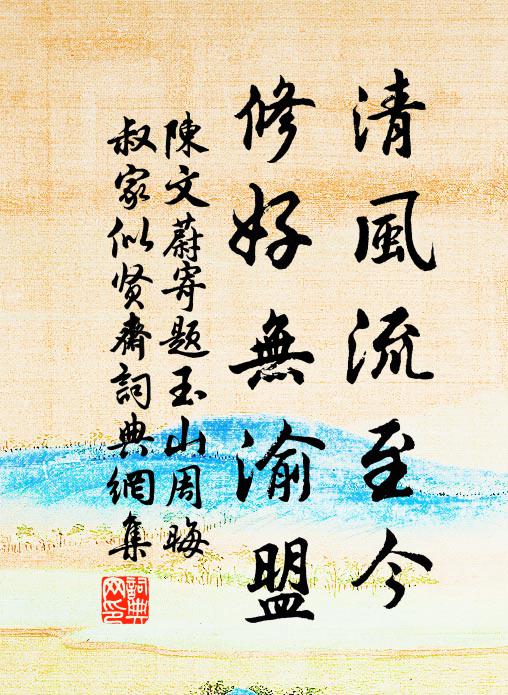 清風流至今
修好無渝盟
陳文蔚寄題玉山周晦
叔家似贤齋詞典網集
詞典網印